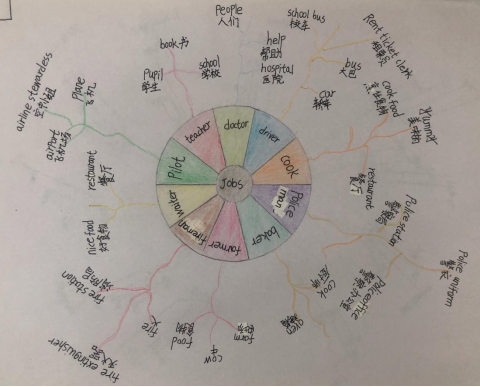 Jobs
doctor
driver
cook
Police man
baker
farmer
fireman
waiter
Pilot
teacher
People
人们
help
帮助
hospital
医院
school bus
校车
Rent ticket clerk
bus
大巴
car
轿车
cook food
Yummy
美味的
restaurant
餐厅
Police station
警察局
Police office
Police uniform
警服
cook
厨师
oven
farm
农场
cow
牛
food
食物
fire
火
fire extinguisher
灭火器
fire station
消防局
nice food
好食物
restaurant
餐厅
airport
飞机场
Plane
飞机
airline stewardess
空中小姐
Pupil
学生
book 书
school
学校